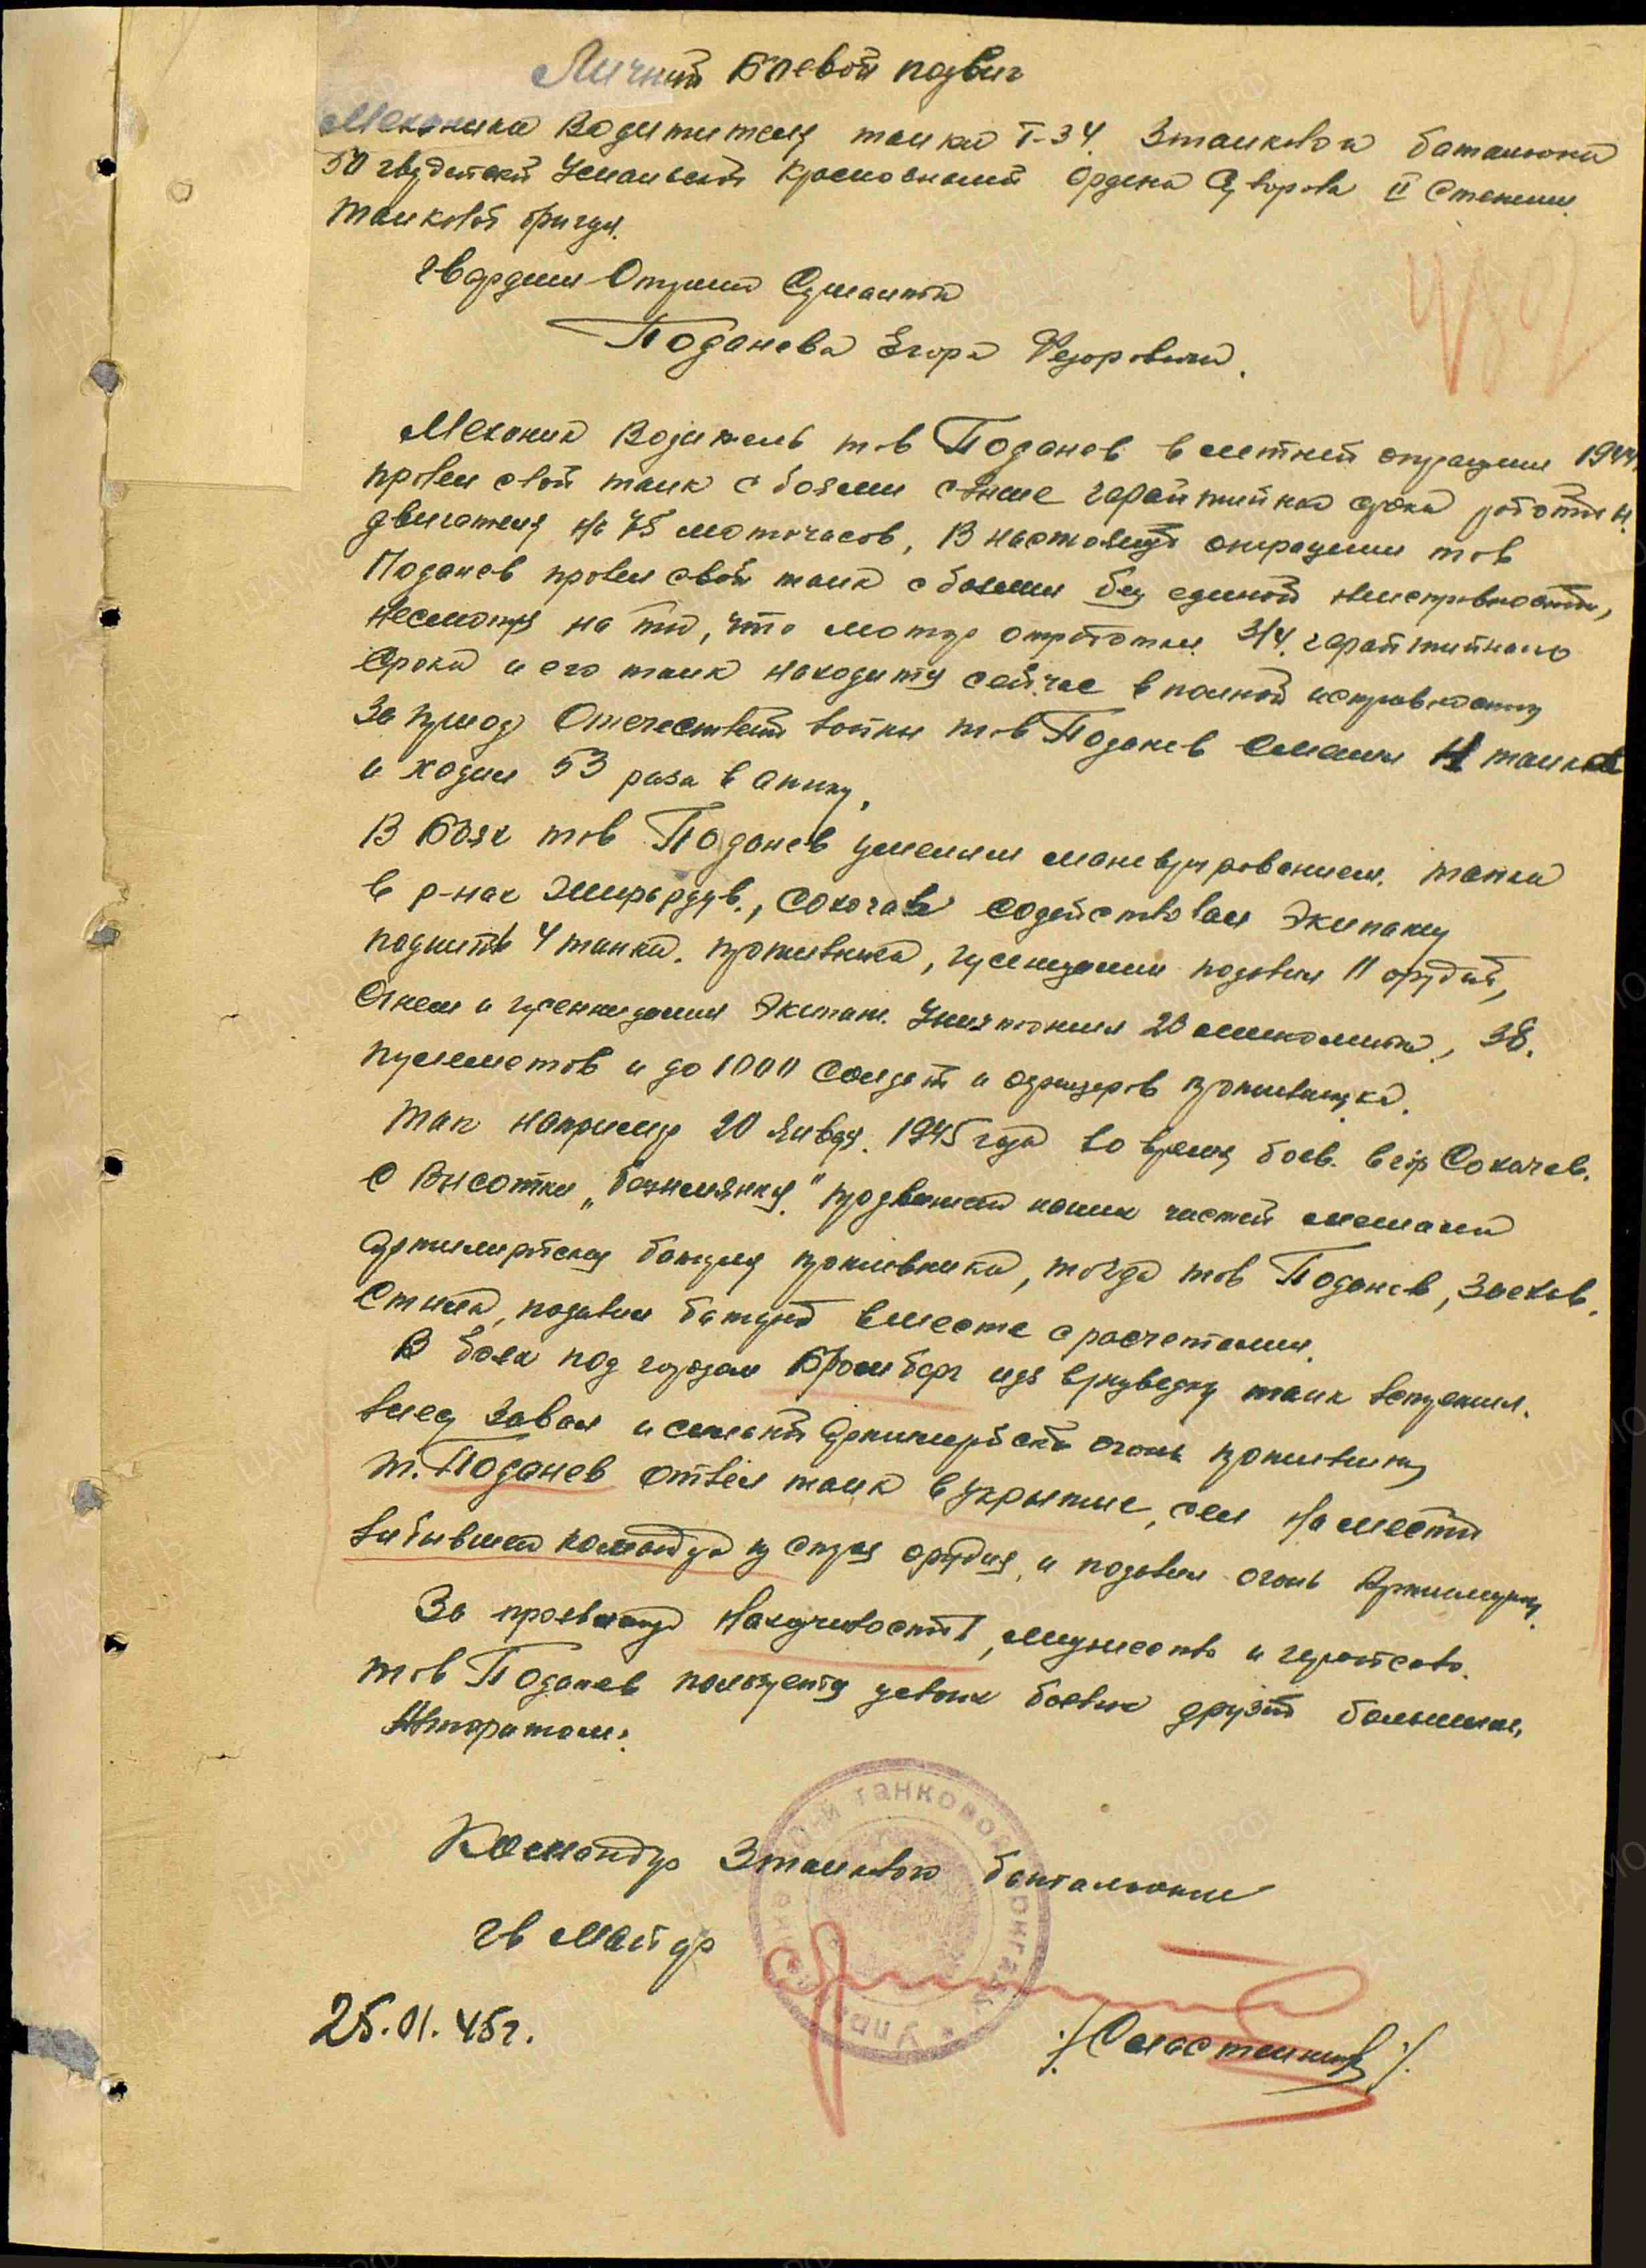 Личный Боевой подвиг
Механика Водитителя танка Т-34. 3 танковой баталиона
50 гвардейской Уманьской Краснознамен Ордена Суворова II Степени
танковой бригды.
гвардии Старшего Сержанта
Поданева Егора Федоровича.
Механик Водитель тов Поданев в летней операции 1944
провел свой танк с боями свыше гарантийного срока работы
двигателя на 75 моточасов, В настоящей операции тов
Поданев провел свой танк с боями без единой неисправности,
несмотря на то, что мотор отработал 3/4. гарантийного
срока и его танк находится сейчас в полной исправности
За период Отечественной войны тов Поданев сменил танков
и ходил 53 раза в атаку.
В Боях тов Поданев умелым маневрированием. танка
в р-нах Жирардув., Сохачев содействовал Экипажу
подбить 4 танка. противника, гусеницами подавил 11 орудий,
Огнем и гусенницами Экипаж. Уничтожил 20 миномета, 38.
пулеметов и до 1000 Солдат и офицеров противника.
Так например 20 января. 1945 года во время боев. в гор Сохачев.
С Высотки „безымянная." продвижению наших частей мешала
Артиллерийская батарея противника, тогда тов Поданев, заехав.
с тыла, подавил батарею вместе с расчетами.
В боях под городом Бромберг идя в разведку танк встретил.
завал и сильный Артиллерийский огонь противника
т. Поданев отвел танк в укрытие, сел на место
выбывшего командира из строя орудия, и подавил огонь Артиллерии.
За проявленую Находчивость, мужество и геройство.
тов Поданев пользуется у своих боевых друзей большим,
Авторитом.
Командир 3 танкового батальона
гв Майор
25.01.45г.
/Сластенин/